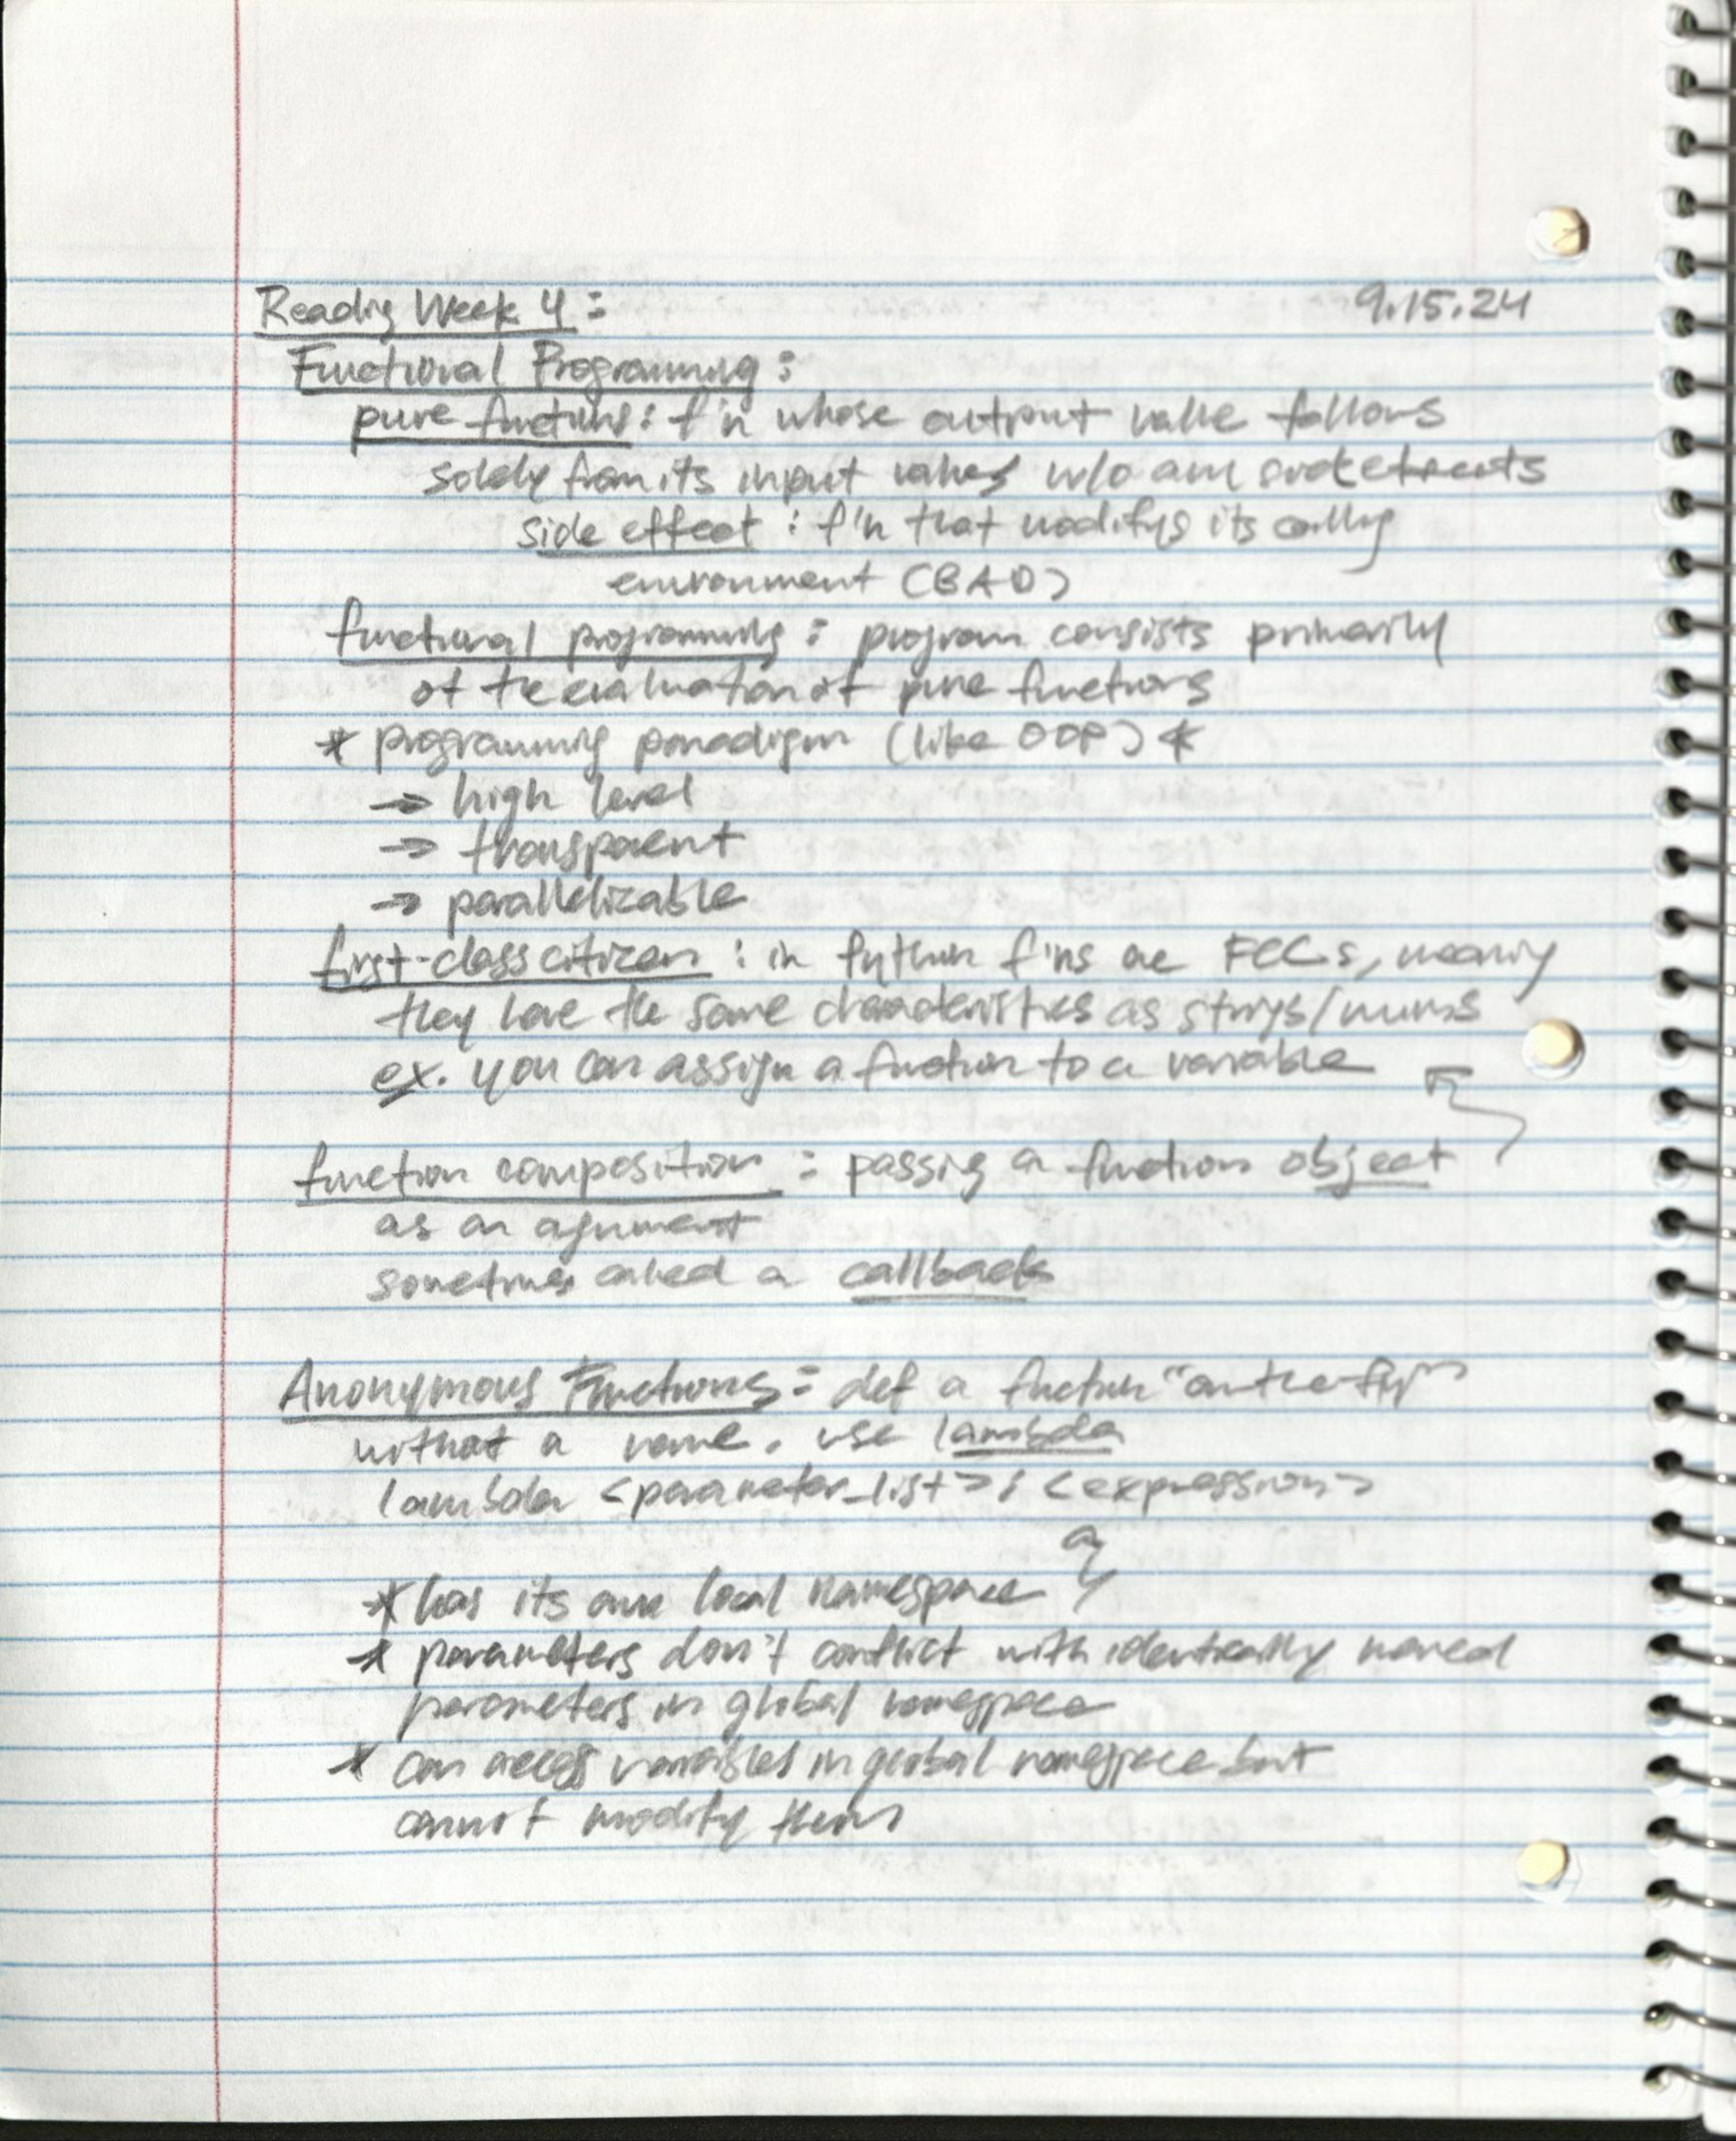 Reading Week 4: 9.15.24
Functional Programming:
pure functions: f'n whose output value follows
solely from its input values w/o any side effects
side effect: f'n that modifys its calling
environment (BAD)
functional programming: program consists primarily
of the evaluation of pure functions
* programming paradigm (like OOP) *
→ high level
→ transparent
→ parallelizable
first-class citizen: in Python f'ns are FCCs, meaning
they have the same characteristics as strings/nums
ex. you can assign a function to a variable
function composition: passing a function object
as an agument
sometimes called a callback
Anonymous Functions: def a function "on-the-fly"
without a name. use lambda
lambda <parameter_list>: <expression>
* has its own local namespace
* parameters don't conflict with identically named
parameters in global namespace
* can access variables in global namespace but
cannot modify them